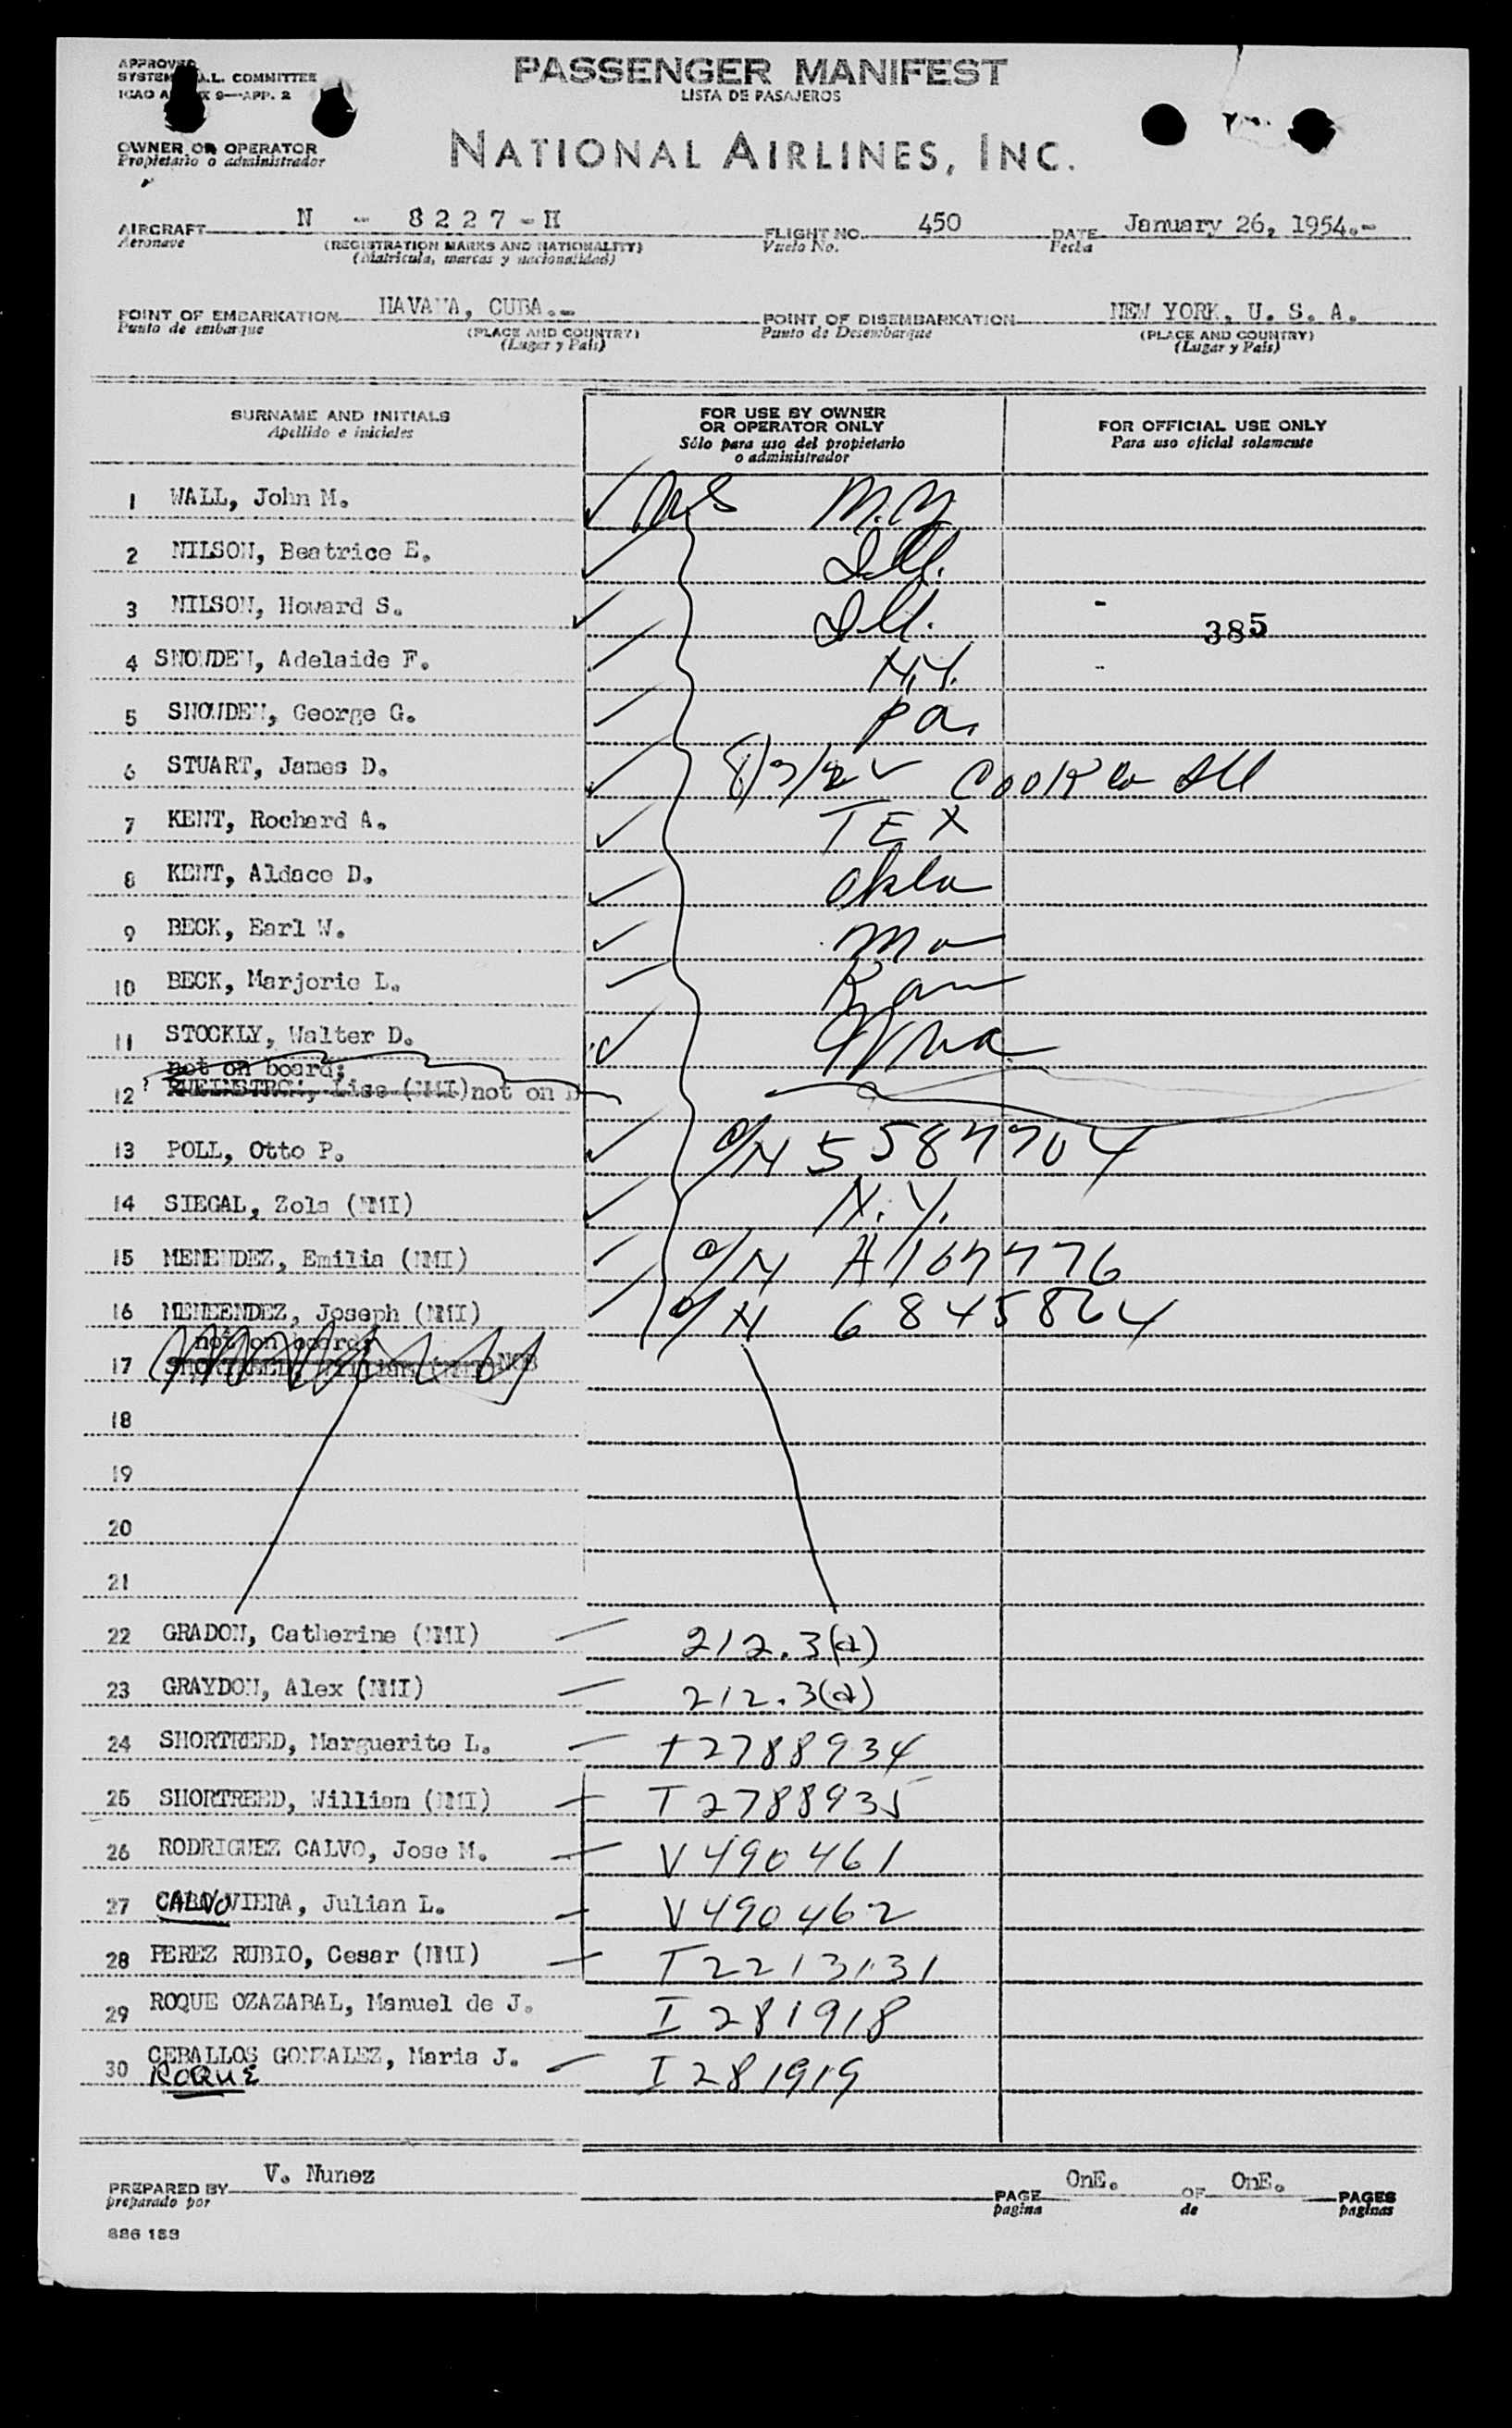 APPROVED
SYSTEM A.L. COMMITTEE
ICAO 9—APP. 2
PASSENGER MANIFEST
LISTA DE PASAJEROS
OWNER OR OPERATOR
Propietario o administrador
NATIONAL AIRLINES, INC.
AIRCRAFT N - 8227-H FLIGHT NO. 450 DATE January 26, 1954.-
Aeronave (REGISTRATION MARKS AND NATIONALITY) Vuelo No. Fecha
(Matricula, marcas y nacionalidad)
POINT OF EMBARKATION HAVANA, CUBA.- POINT OF DISEMBARKATION NEW YORK, U. S. A.
Punto de embarque (PLACE AND COUNTRY) Punto de Desembarque (PLACE AND COUNTRY)
(Lugar y Pais) (Lugar y Pais)
SURNAME AND INITIALS FOR USE BY OWNER OR OPERATOR ONLY FOR OFFICIAL USE ONLY
Apellido e iniciales Sólo para uso del propietario o administrador Para uso oficial solamente
1 WALL, John M. US
2 NILSON, Beatrice E. Ill.
3 NILSON, Howard S. Ill. 385
4 SNOWDEN, Adelaide F. N.Y.
5 SNOWDEN, George G. Pa.
6 STUART, James D. Ill
7 KENT, Rochard A. TEX
8 KENT, Aldace D. Okla
9 BECK, Earl W. Mo
10 BECK, Marjorie L. Kan
11 STOCKLY, Walter D.
not on board;
12 Lise (NMI) not on
13 POLL, Otto P. c/N 5587704
14 SIEGAL, Zola (NMI) N.Y.
15 MENENDEZ, Emilia (NMI) c/N
16 MENEENDEZ, Joseph (NMI) c/N 6845864
not on board;
17 NOB
18
19
20
21
22 GRADON, Catherine (NMI) 212.3(a)
23 GRAYDON, Alex (NMI) 212.3(a)
24 SHORTREED, Marguerite L. T2788934
25 SHORTREED, William (NMI) T2788935
26 RODRIGUEZ CALVO, Jose M. V490461
27 CALVO VIERA, Julian L. V490462
28 PEREZ RUBIO, Cesar (NMI) T2213131
29 ROQUE OZAZABAL, Manuel de J. I281918
30 CEBALLOS GONZALEZ, Maria J. I281919
ROQUE
PREPARED BY V. Nunez PAGE OnE. OF OnE. PAGES
preparado por pagina de paginas
886 183